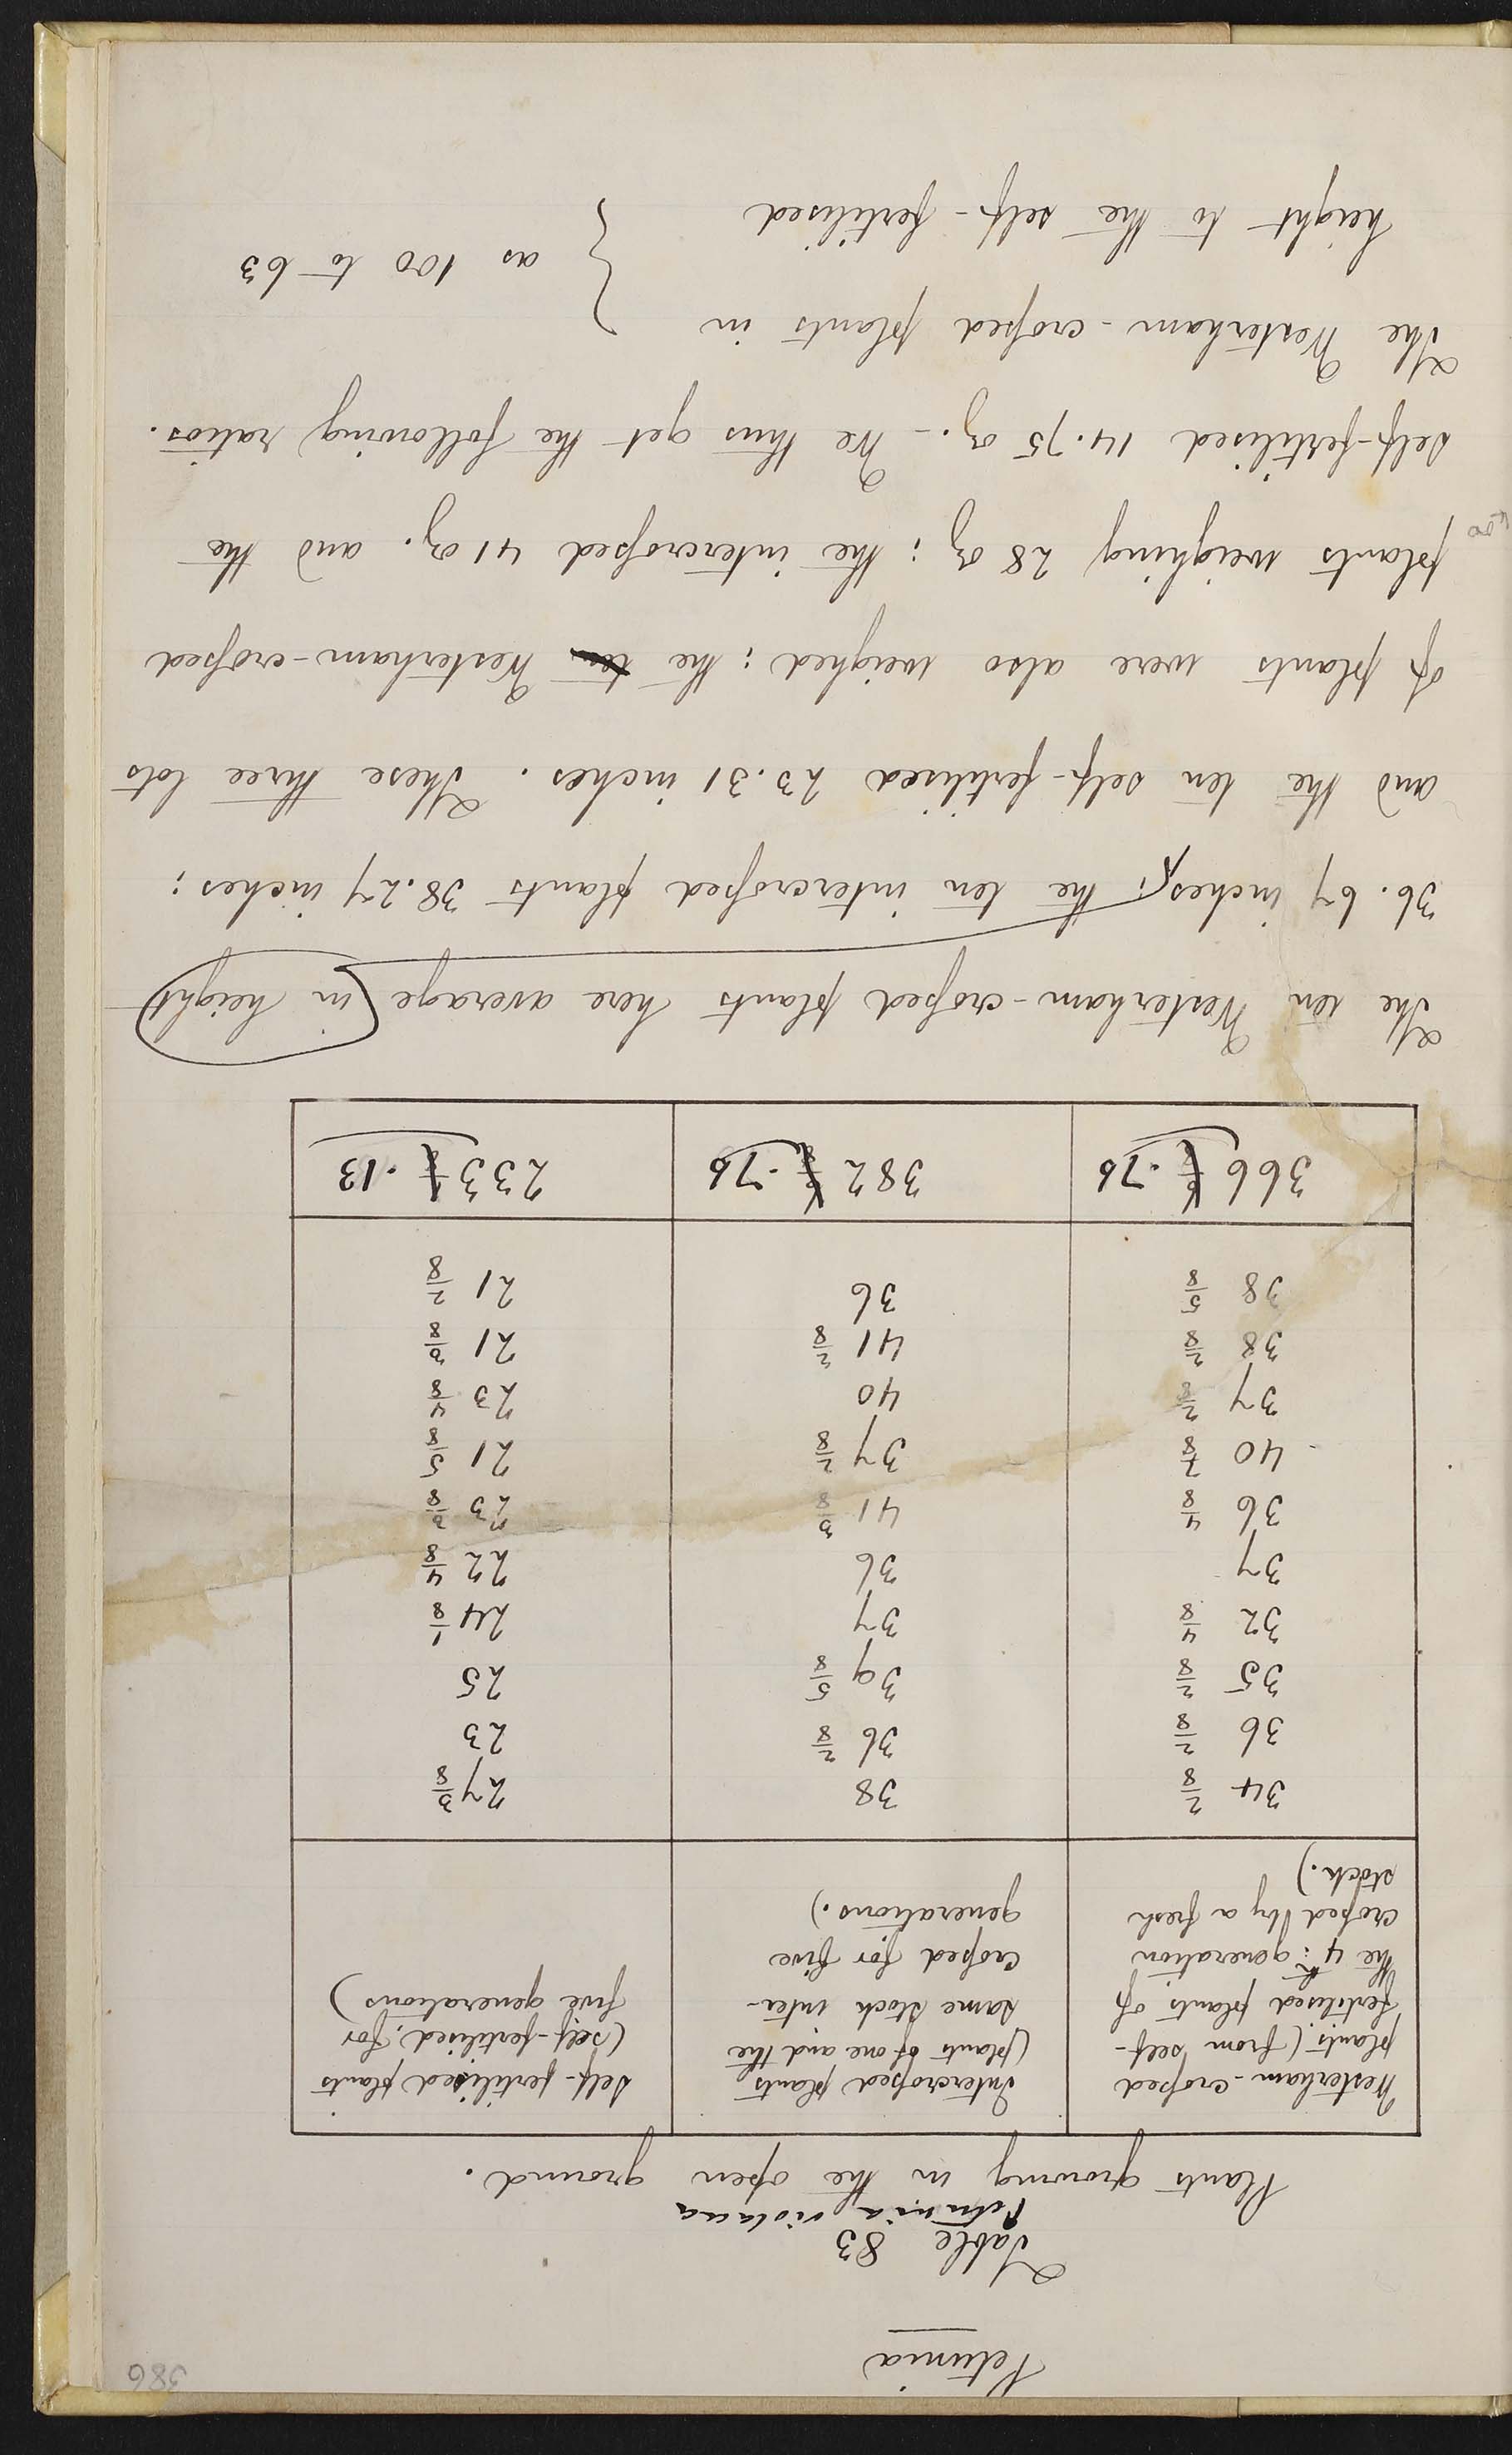 386
Petunia
Table 83
Petunia violacea
Plants growing in the open ground.
Westerham-crossed plants. (from self-fertilised plants of the 4th generation crossed by a fresh stock.) | Intercrossed plants (plants of one and the same stock inter-crossed for five generations.) | Self-fertilised plants (self-fertilised for five generations)
34 2/8 | 38 | 27 3/8
36 2/8 | 36 2/8 | 23
35 2/8 | 39 5/8 | 25
32 4/8 | 37 | 24 1/8
37 | 36 | 22 4/8
36 4/8 | 41 3/8 | 23 3/8
40 7/8 | 37 2/8 | 21 5/8
37 2/8 | 40 | 23 4/8
38 2/8 | 41 2/8 | 21 3/8
38 5/8 | 36 | 21 2/8
366 .76 | 382 .76 | 233 .13
The ten Westerham-crossed plants here average in height
36.67 inches; the ten intercrossed plants 38.27 inches:
and the ten self-fertilised 23.31 inches. These three lots
of plants were also weighed: the ten Westerham-crossed
plants weighing 28 oz: the intercrossed 41 oz. and the
self-fertilised 14.75 oz. - We thus get the following ratios.
The Westerham-crossed plants in
height to the self-fertilised } as 100 to 63